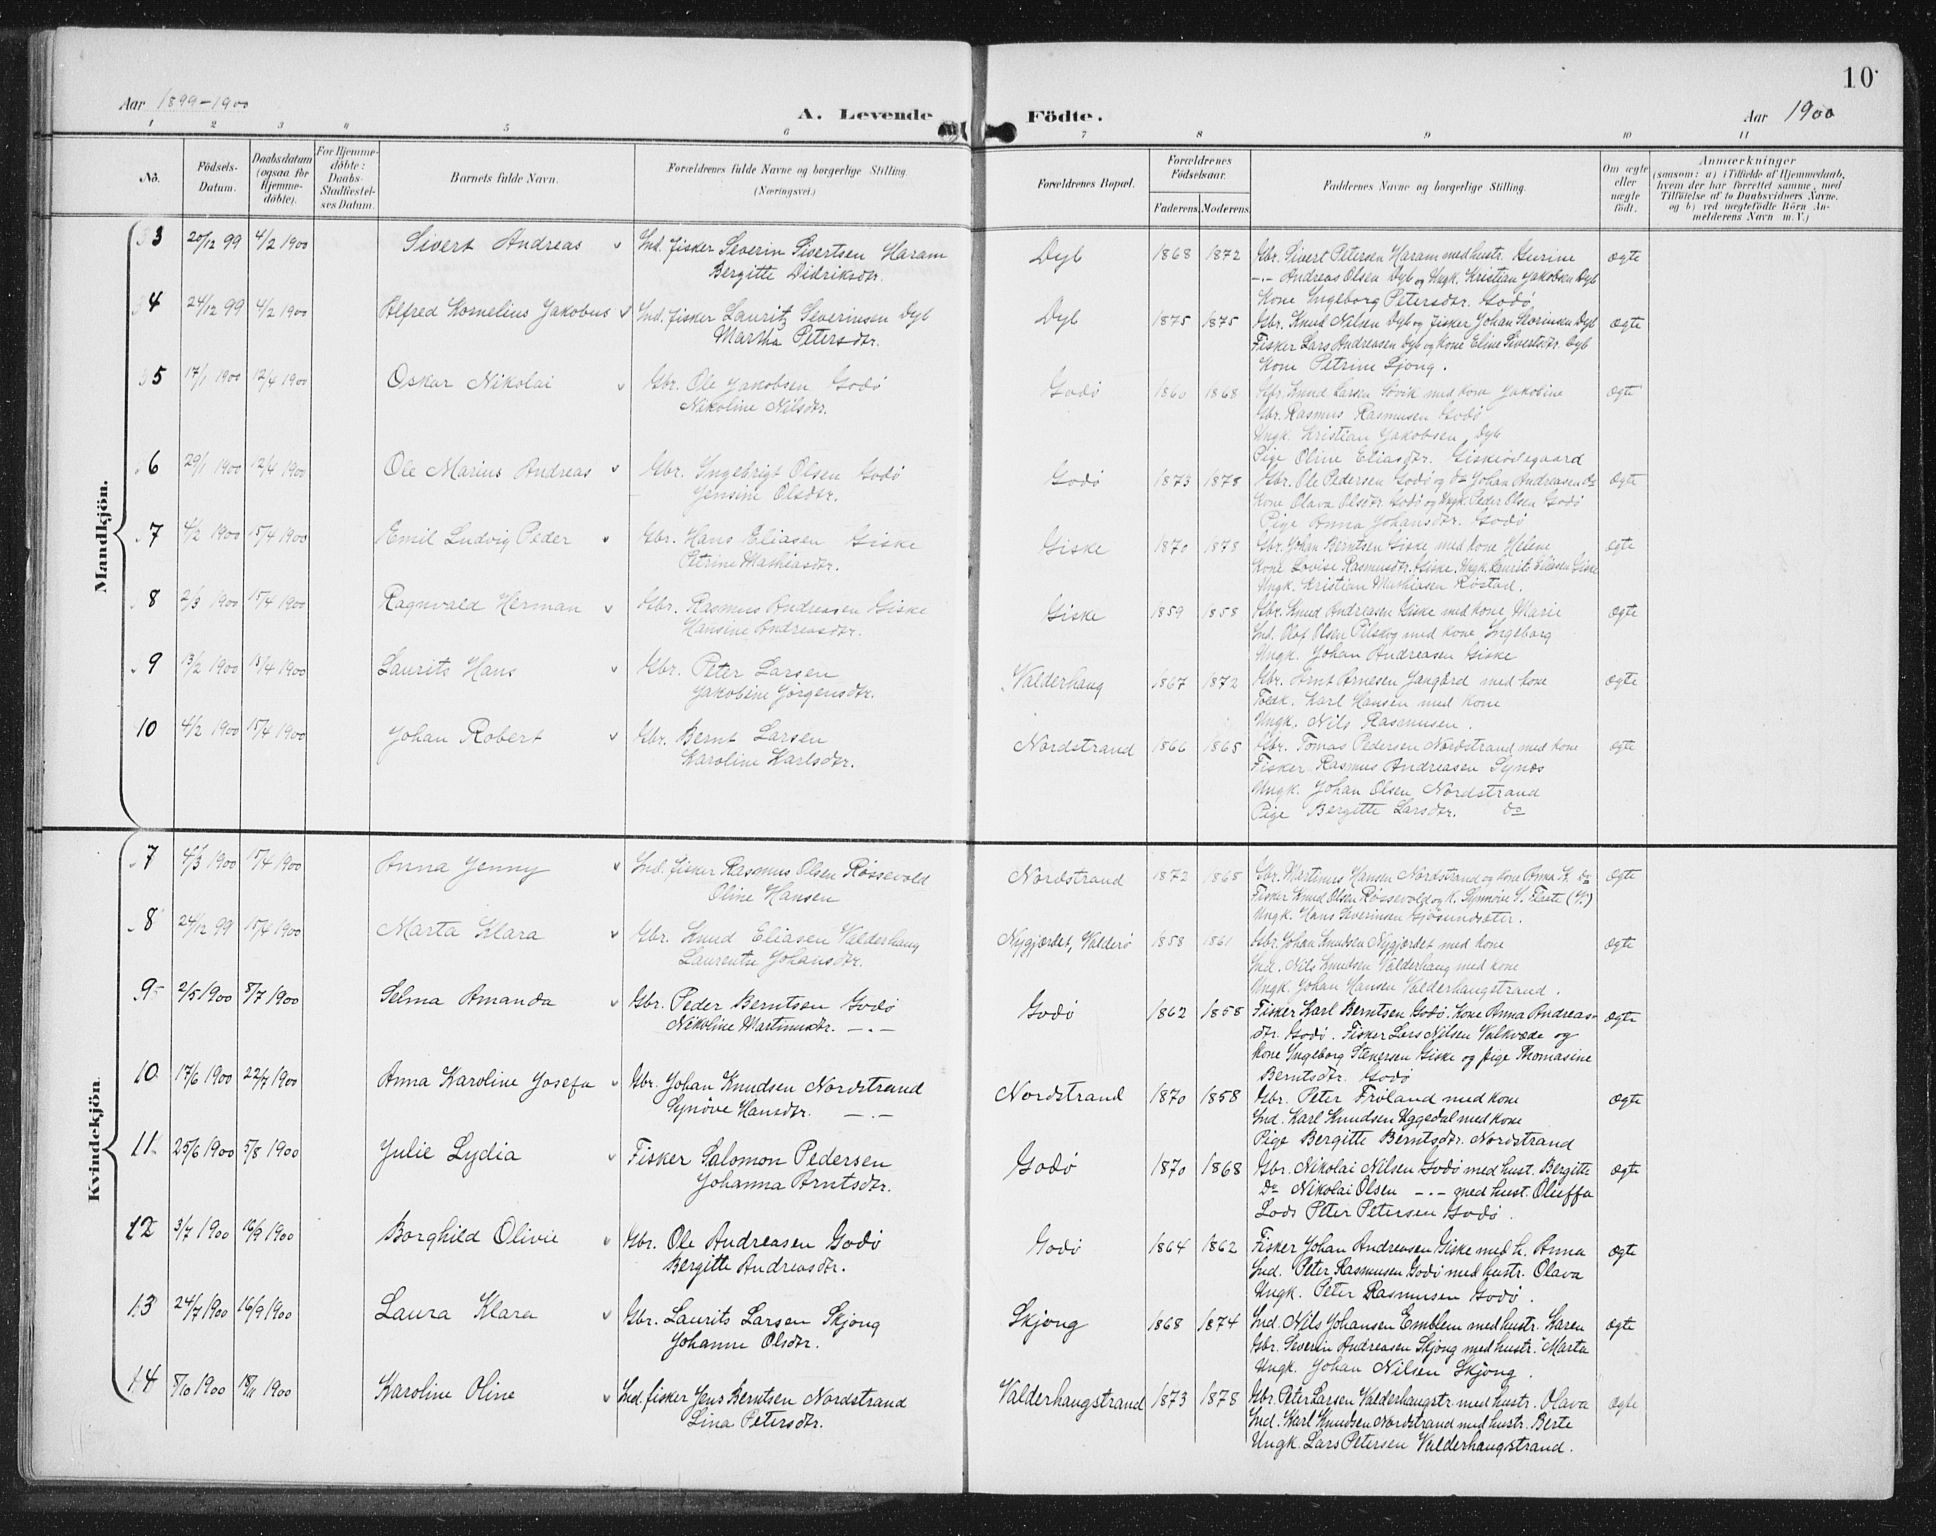 Aar 1899-1900 A. Levende Födte. Aar 1900 10
1 2 3 4 5 6 7 8 9 10 11
No. Födsels-Datum. Daabsdatum (ogsaa for Hjemmedöbte). For Hjemmedöbte: Daabs-Stadfæstelses Datum. Barnets fulde Navn. Forældrenes fulde Navne og borgerlige Stilling. (Næringsvei.) Forældrenes Bopæl. Forældrenes Födselsaar. Faderens. Moderens. Faddernes Navne og borgerlige Stilling. Om ægte eller uægte födt. Anmærkninger (saasom: a) i Tilfælde af Hjemmedaab, hvem der har forrettet samme, med Tilföielse af to Daabsvidners Navne, og b) ved uægtefödte Börn Anmelderens Navn m. V.)
Mandkjön.
3 20/12 99 4/2 1900 Sivert Andreas Ind. fisker Severin Sivertsen Haram Dyb 1868 1872 Gbr. Sivert Petersen Haram med hustr. Gurine ægte
Bergitte Didriksdtr. -·- Andreas Olsen Dyb og Ungk. Kristian Jakobsen Dyb
Kone Ingeborg Petersdtr. Godö
4 24/12 99 4/2 1900 Alfred Kornelius Jakobus Ind. fisker Lauritz Severinsen Dyb Dyb 1875 1875 Gbr. Knud Nilsen Dyb og fisker Johan Severinsen Dyb ægte
Martha Petersdtr. Fisker Lars Andreasen Dyb og kone Eline Sivertsdtr. Dyb
Kone Petrine Sjong.
5 17/1 1900 12/4 1900 Oskar Nikolai Gbr. Ole Jakobsen Godö Godö 1860 1868 Gbr. Knud Larsen Søvik med kone Jakobine ægte
Nikoline Nilsdtr. Gbr. Rasmus Rasmusen Godö
Ungk. Kristian Jakobsen Dyb
Pige Oline Eliasdtr. Giskeødegaard
6 29/1 1900 12/4 1900 Ole Marius Andreas Gbr. Ingebrigt Olsen Godö Godö 1873 1878 Gbr. Ole Pedersen Godö og do Johan Andreasen do ægte
Jensine Olsdtr. Kone Olava Olsdtr. Godö og Ungk. Peder Olsen Godö
Pige Anna Johansdtr. Godö
7 4/2 1900 15/4 1900 Emil Ludvig Peder Gbr. Hans Eliasen Giske Giske 1870 1878 Gbr. Johan Berntsen Giske med kone Helene ægte
Petrine Mathiasdtr. Kone Lovise Rasmusdtr. Giske. Ungk. Laurits Eliasen Giske
Ungk. Kristian Mathiasen Røstad.
8 2/3 1900 15/4 1900 Ragnvald Herman Gbr. Rasmus Andreasen Giske Giske 1859 1858 Gbr. Knud Andreasen Giske med kone Marie ægte
Hansine Andreasdtr. Ind. Olaf Olsen Pilskog med kone Ingeborg
Ungk. Johan Andreasen Giske
9 13/2 1900 15/4 1900 Laurits Hans Gbr. Peter Larsen Valderhaug 1867 1872 Gbr. Arnt Arnesen Jangård med kone ægte
Jakobine Jørgensdtr. Fdk. Karl Hansen med kone
Ungk. Nils Rasmusen.
10 4/2 1900 15/4 1900 Johan Robert Gbr. Bernt Larsen Nordstrand 1866 1865 Gbr. Tomas Pedersen Nordstrand med kone ægte
Karoline Karlsdtr. Fisker Rasmus Andreasen Synes
Ungk. Johan Olsen Nordstrand
Pige Bergitte Larsdtr. do
Kvindekjön.
7 4/3 1900 15/4 1900 Anna Jenny Ind. fisker Rasmus Olsen Røssevold Nordstrand 1872 1868 Gbr. Martinus Hansen Nordstrand og kone Anna K. do ægte
Oline Hansen Fisker Knud Olsen Røssevold og K. Synnøve S. Flaate (?)
Ungk. Hans Severinsen Gjøsundsæter.
8 24/12 99 15/4 1900 Marta Klara Gbr. Knud Eliasen Valderhaug Nygjærdet, Valderö 1858 1861 Gbr. Johan Knudsen Nygjærdet med kone ægte
Laurentse Johansdtr. Ind. Nils Knudsen Valderhaug med kone
Ungk. Johan Hansen Valderhaugstrand.
9 2/5 1900 8/7 1900 Selma Amanda Gbr. Peder Berntsen Godö Godö 1862 1858 Fisker Karl Berntsen Godö. Kone Anna Andreas- ægte
Nikoline Martinusdtr. -·- dtr. Godö. Fisker Lars Nilsen Valkvæde og
kone Ingeborg Stenersen Giske og pige Thomasine
Berntsdtr. Godö
10 17/6 1900 22/7 1900 Anna Karoline Josefa Gbr. Johan Knudsen Nordstrand Nordstrand 1870 1858 Gbr. Peter Frøland med kone ægte
Synøve Hansdtr. -·- Ind. Karl Knudsen Uggedal med kone
Pige Bergitte Berntsdtr. Nordstrand
11 25/6 1900 5/8 1900 Julie Lydia Fisker Salomon Pedersen Godö 1870 1868 Gbr. Nikolai Nilsen Godö med hust. Bergitte ægte
Johanna Arntsdtr. do Nikolai Olsen -·- med hust. Oluffa
Lods Peter Petersen Godö.
12 3/7 1900 16/9 1900 Borghild Olivie Gbr. Ole Andreasen Godö Godö 1864 1862 Fisker Johan Andreasen Giske med h. Anna ægte
Bergitte Andreasdtr. Ind. Peter Rasmusen Godö med hustr. Olava
Ungk. Peter Rasmusen Godö.
13 24/7 1900 16/9 1900 Laura Klara Gbr. Laurits Larsen Skjong Skjong 1868 1874 Ind. Nils Johansen Emblem med hustr. Karen ægte
Johanne Olsdtr. Gbr. Severin Andreasen Skjong med hustr. Marta
Ungk. Johan Nilsen Skjong.
14 8/10 1900 18/11 1900 Karoline Oline Ind. fisker Jens Berntsen Nordstrand Valderhaugstrand 1873 1878 Gbr. Peter Larsen Valderhaugstr. med hustr. Olava ægte
Lina Petersdtr. Ind. Karl Knudsen Nordstrand med hustr. Berte
Ungk. Lars Petersen Valderhaugstrand.